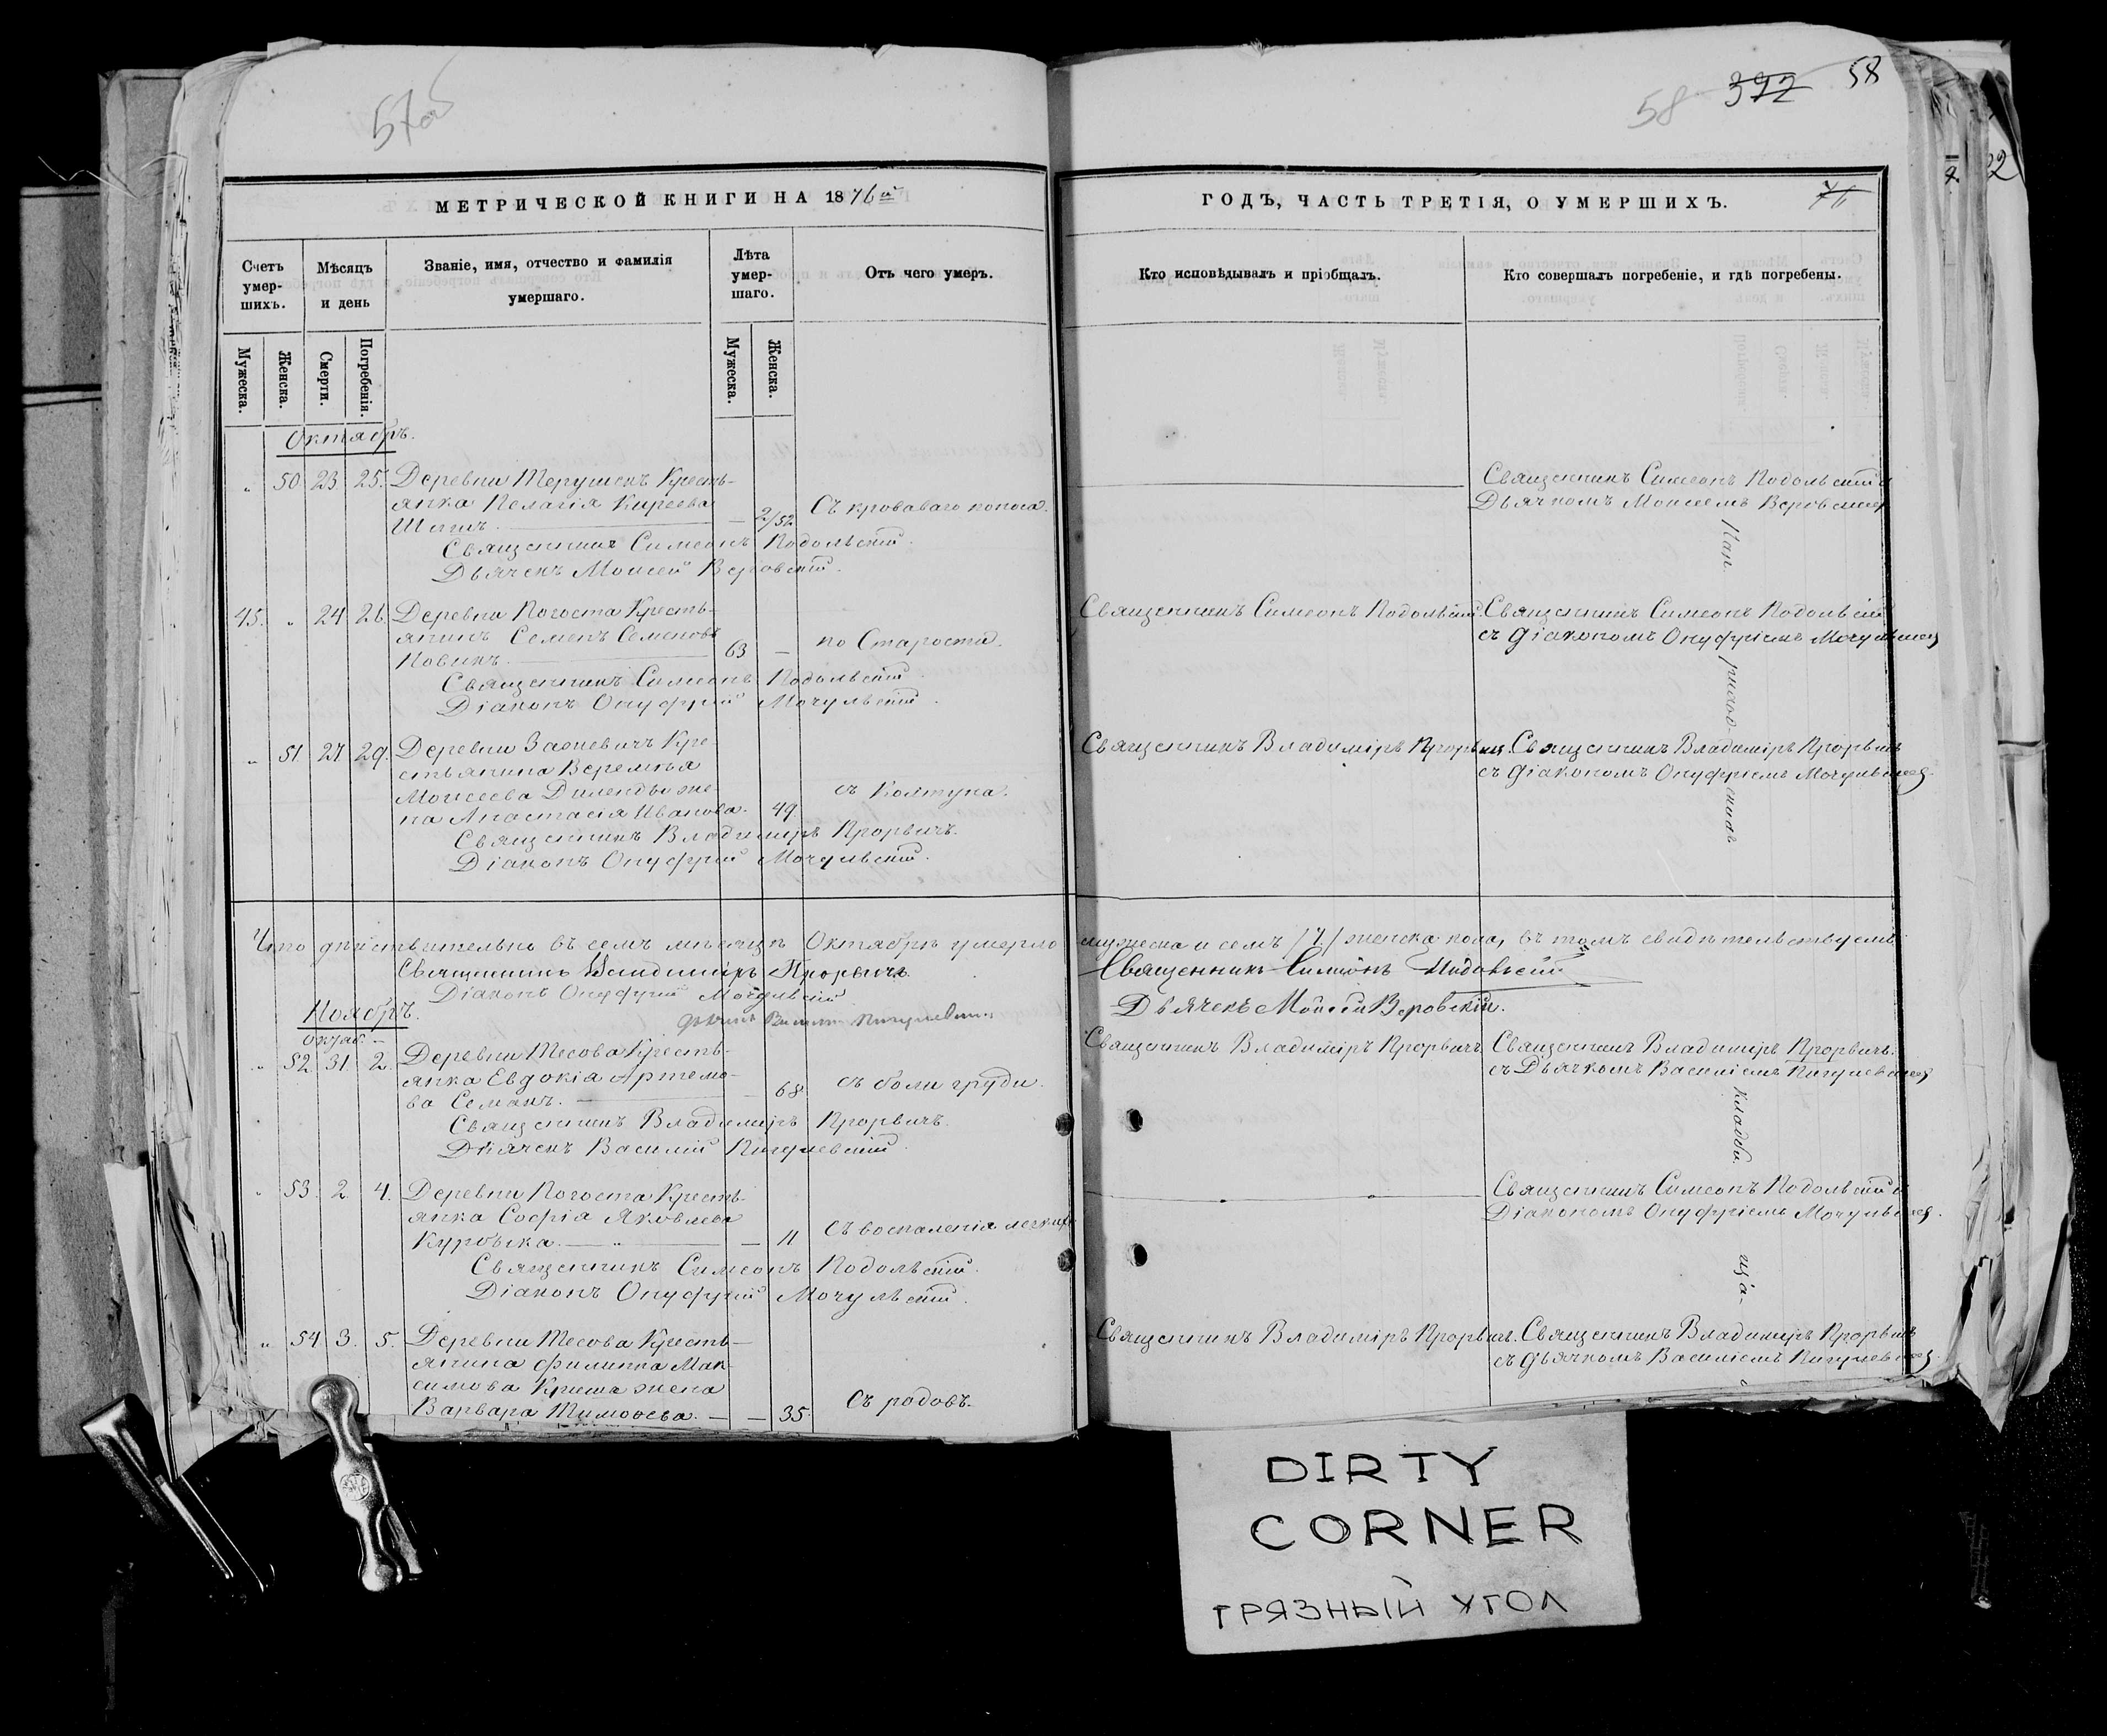 57об
58 392 58
МЕТРИЧЕСКОЙ КНИГИ НА 1876й
ГОДЪ, ЧАСТЬ ТРЕТІЯ, О УМЕРШИХЪ.
76
Счетъ умер-шихъ.
Мѣсяцъ и день
Званіе, имя, отчество и фамилія умершаго.
Лѣта умер-шаго.
Отъ чего умеръ.
Кто исповѣдывалъ и пріобщалъ.
Кто совершалъ погребеніе, и гдѣ погребены.
Мужеска.
Женска.
Смерти.
Погребенія.
Мужеска.
Женска.
Октябрь.
50 23 25. Деревни Терушекъ Кресть-
янка Пелагія Киреева
2/52 Съ кроваваго поноса.
Священникъ Симеонъ Подольскій.
Дьячекъ Моисей Веровскій.
Священникъ Симеонъ Подольскій съ
Дьячкомъ Моисеемъ Веровскимъ
45. 24 26. Деревни Погоста Кресть-
янинъ Семенъ Семеновъ
Новикъ. 63 по Старости.
Священникъ Симеонъ Подольскій.
Діаконъ Онуфрій Мочульскій.
Священникъ Симеонъ Подольскій.
Священникъ Симеонъ Подольскій
съ Діакономъ Онуфріемъ Мочульским
51 27 29. Деревни Заеневичъ Кре-
стьянина Веремѣя
Моисеева Диленды же-
на Анастасія Иванова. 49. съ Колтуна.
Священникъ Владиміръ Прорвичъ.
Діаконъ Онуфрій Мочульскій.
Священникъ Владиміръ Прорвичъ.
Священникъ Владиміръ Прорвичъ
съ Діакономъ Онуфріемъ Мочульским
На п.
риход-
скихъ
Что дѣйствительно въ семъ мѣсяцѣ Октябрѣ умерло мужеска и семъ /7/ женска пола, въ томъ свидѣтельствуемъ:
Священникъ Владиміръ Прорвичъ
Священникъ Симеонъ Подольскій
Діаконъ Онуфрій Мочульскій
Дьячекъ Моисей Веровскій.
Ноябрь.
Октяб.
52 31. 2. Деревни Тесова Кресть-
янка Евдокія Артемо-
ва Семакъ. 68. съ боли груди.
Священникъ Владиміръ Прорвичъ.
Дьячекъ Василій Пигулевскій.
Священникъ Владиміръ Прорвичъ.
Священникъ Владиміръ Прорвичъ.
съ Дьячкомъ Василіемъ Пигулевским
кладби-
ща.
53. 2. 4. Деревни Погоста Кресть-
янка Софія Яковлева
11 Съ воспаленія легкихъ
Священникъ Симеонъ Подольскій.
Діаконъ Онуфрій Мочульскій.
Священникъ Симеонъ Подольскій съ
Діакономъ Онуфріемъ Мочульским.
54 3. 5. Деревни Тесова Кресть-
янина Филиппа Мак-
симова Криша жена
Варвара Тимоѳева. 35. Съ родовъ.
Священникъ Владиміръ Прорвичъ.
Священникъ Владиміръ Прорвичъ
съ Дьячкомъ Василіемъ Пигулевским
DIRTY
CORNER
ГРЯЗНЫЙ УГОЛ